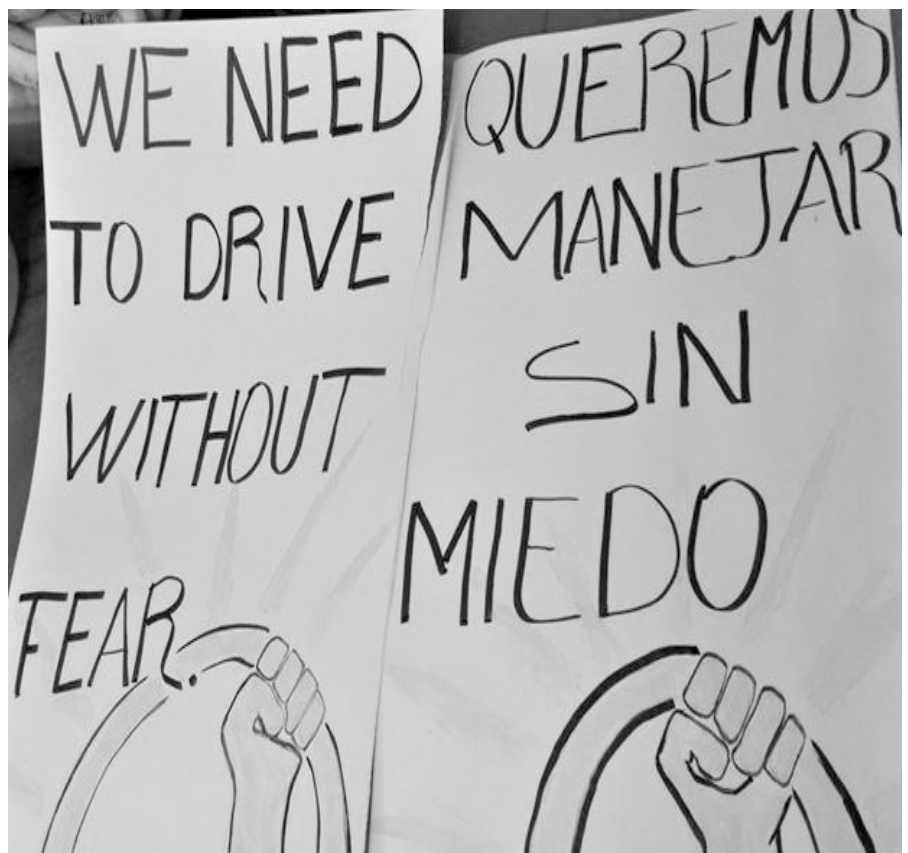 WE NEED
TO DRIVE
WITHOUT
FEAR.
QUEREMOS
MANEJAR
SIN
MIEDO